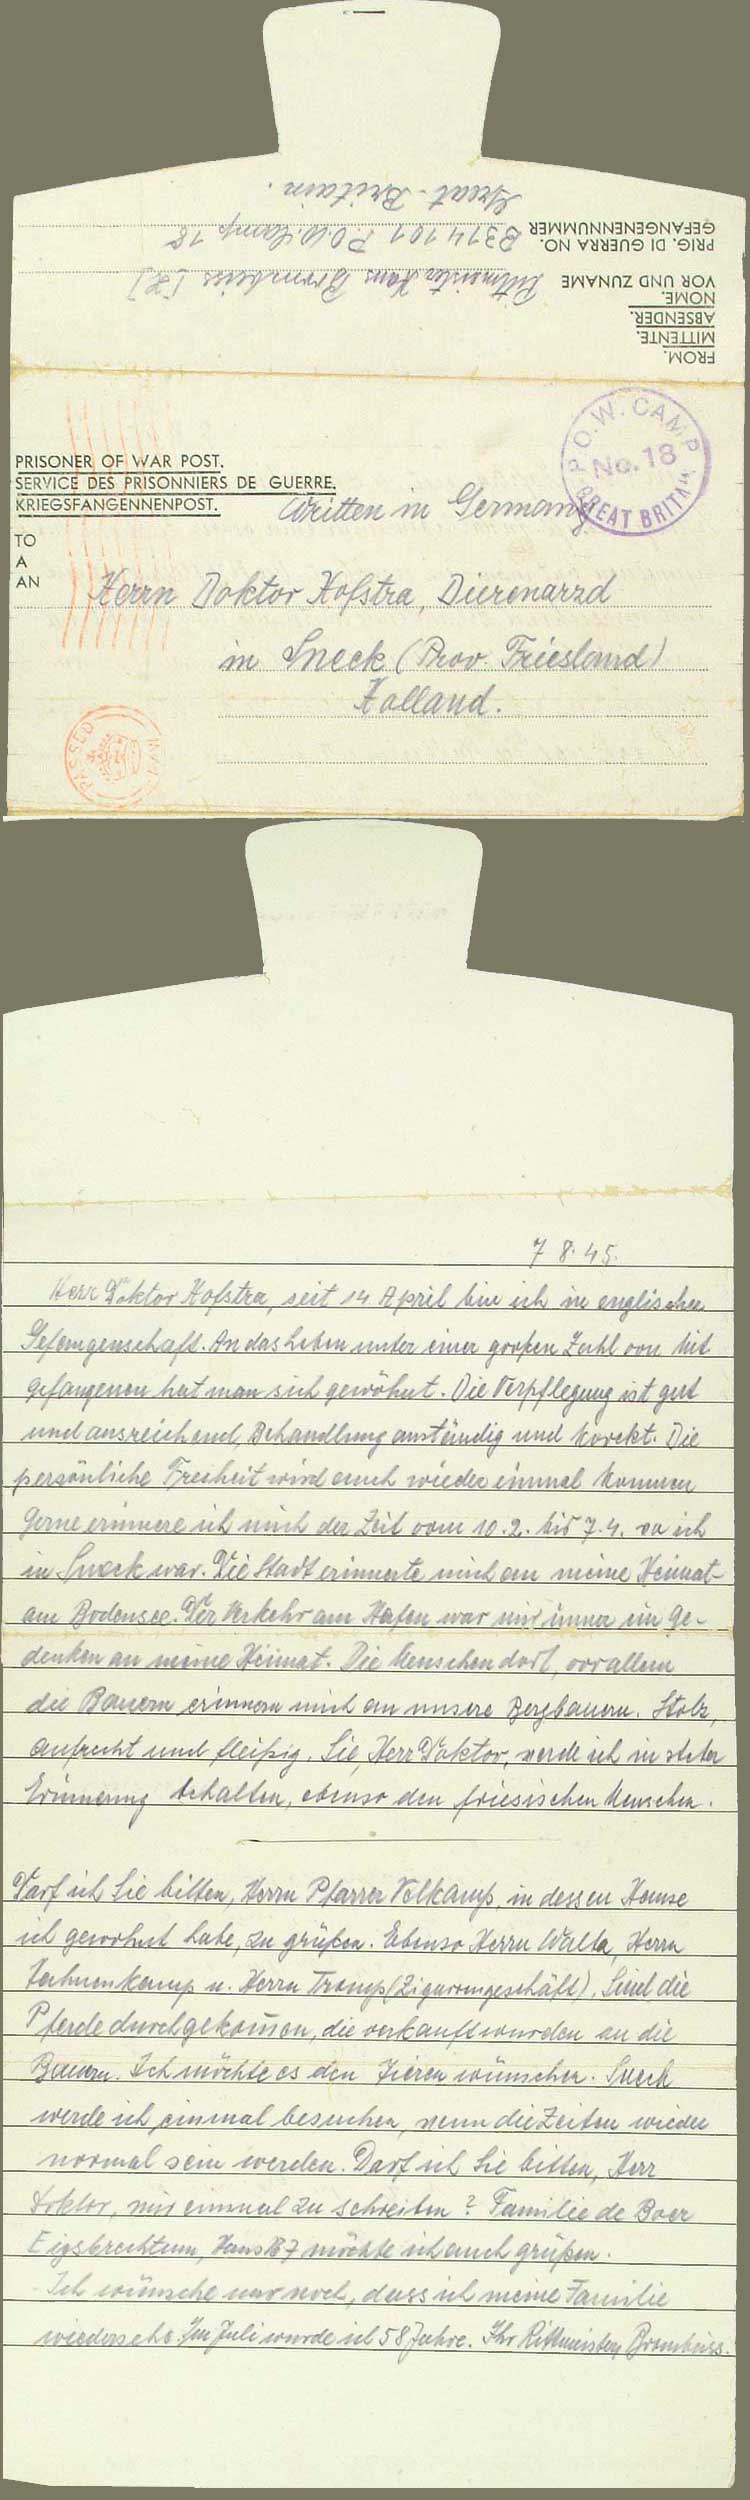 Great-Britain.
B314101 P.O.W. Camp 18
PRIG. DI GUERRA NO.
GEFANGENNUMMER
Rittmeister Hans Brombeiss
VOR UND ZUNAME
NOME.
ABSENDER.
MITTENTE.
FROM.
P.O.W. CAMP
No. 18
GREAT BRITAIN
PRISONER OF WAR POST.
SERVICE DES PRISONNIERS DE GUERRE.
KRIEGSFANGENNENPOST.
Written in Germany
TO
A
AN
Herrn Doktor Hofstra, Dierenarzd
in Sneek (Prov. Friesland)
Holland.
PASSED
7 8. 45.
Herr Doktor Hofstra, seit 14 April bin ich in englischer
Gefangenschaft. An das Leben unter einer großen Zahl von Mit
gefangenen hat man sich gewöhnt. Die Verpflegung ist gut
und ausreichend, Behandlung anständig und korekt. Die
persönliche Freiheit wird auch wieder einmal kommen
Gerne erinnere ich mich der Zeit vom 10.2. bis 7.4. wo ich
in Sneek war. Die Stadt erinnerte mich an meine Heimat-
am Bodensee. Der Verkehr am Hafen war mir immer ein Ge-
denken an meine Heimat. Die Menschen dort, vor allem
die Bauern erinnern mich an unsere Bergbauern. Stolz,
aufrecht und fleißig. Sie, Herr Doktor, werde ich in steter
Erinnerung behalten, ebenso den friesischen Menschen.
Darf ich Sie bitten, Herrn Pfarrer Volkamp, in dessen Hause
ich gewohnt habe, zu grüßen. Ebenso Herrn Walta, Herrn
u. Herrn Tromp (Zigarrengeschäft). Sind die
Pferde durchgekommen, die verkauft wurden an die
Bauern. Ich möchte es den Tieren wünschen. Sneek
werde ich einmal besuchen, wenn die Zeiten wieder
normal sein werden. Darf ich Sie bitten, Herr
Doktor, mir einmal zu schreiben? Familie de Boer
Haus möchte ich auch grüßen.
Ich wünsche nur noch, dass ich meine Familie
wiedersehe. Im Juli wurde ich 58 Jahre. Ihr Rittmeister Brombeiss.